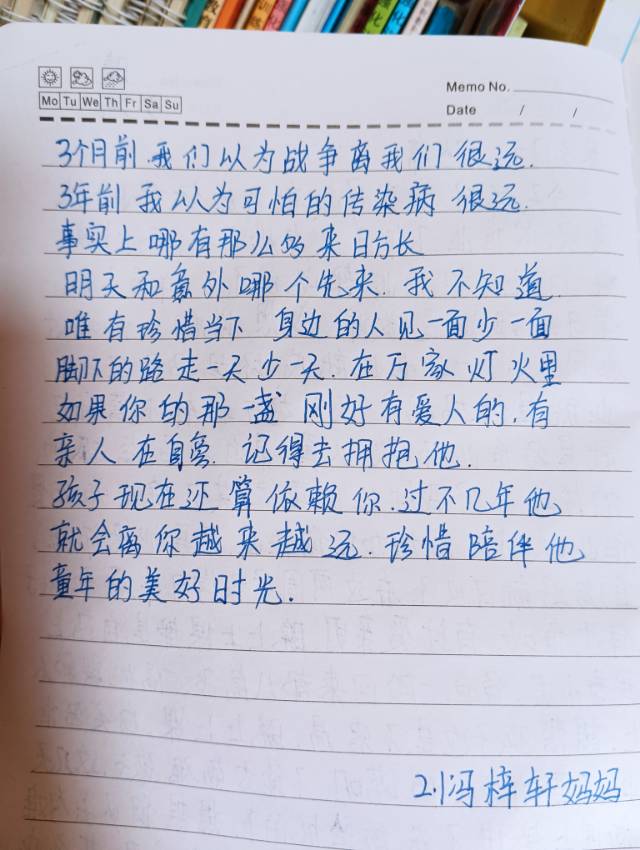 Memo No.
Mo Tu We Th Fr Sa Su
Date / /
3个月前 我们以为战争离我们很远.
3年前 我以为可怕的传染病 很远.
事实上哪有那么多来日方长
明天和意外哪个先来. 我不知道
唯有珍惜当下 身边的人见一面少一面
脚下的路走一天少一天. 在万家灯火里
如果你的那一盏 刚好有爱人的. 有
亲人在自旁. 记得去拥抱他.
孩子现在还算依赖你. 过不几年他
就会离你越来越远. 珍惜陪伴他
童年的美好时光.
2.1冯梓轩妈妈